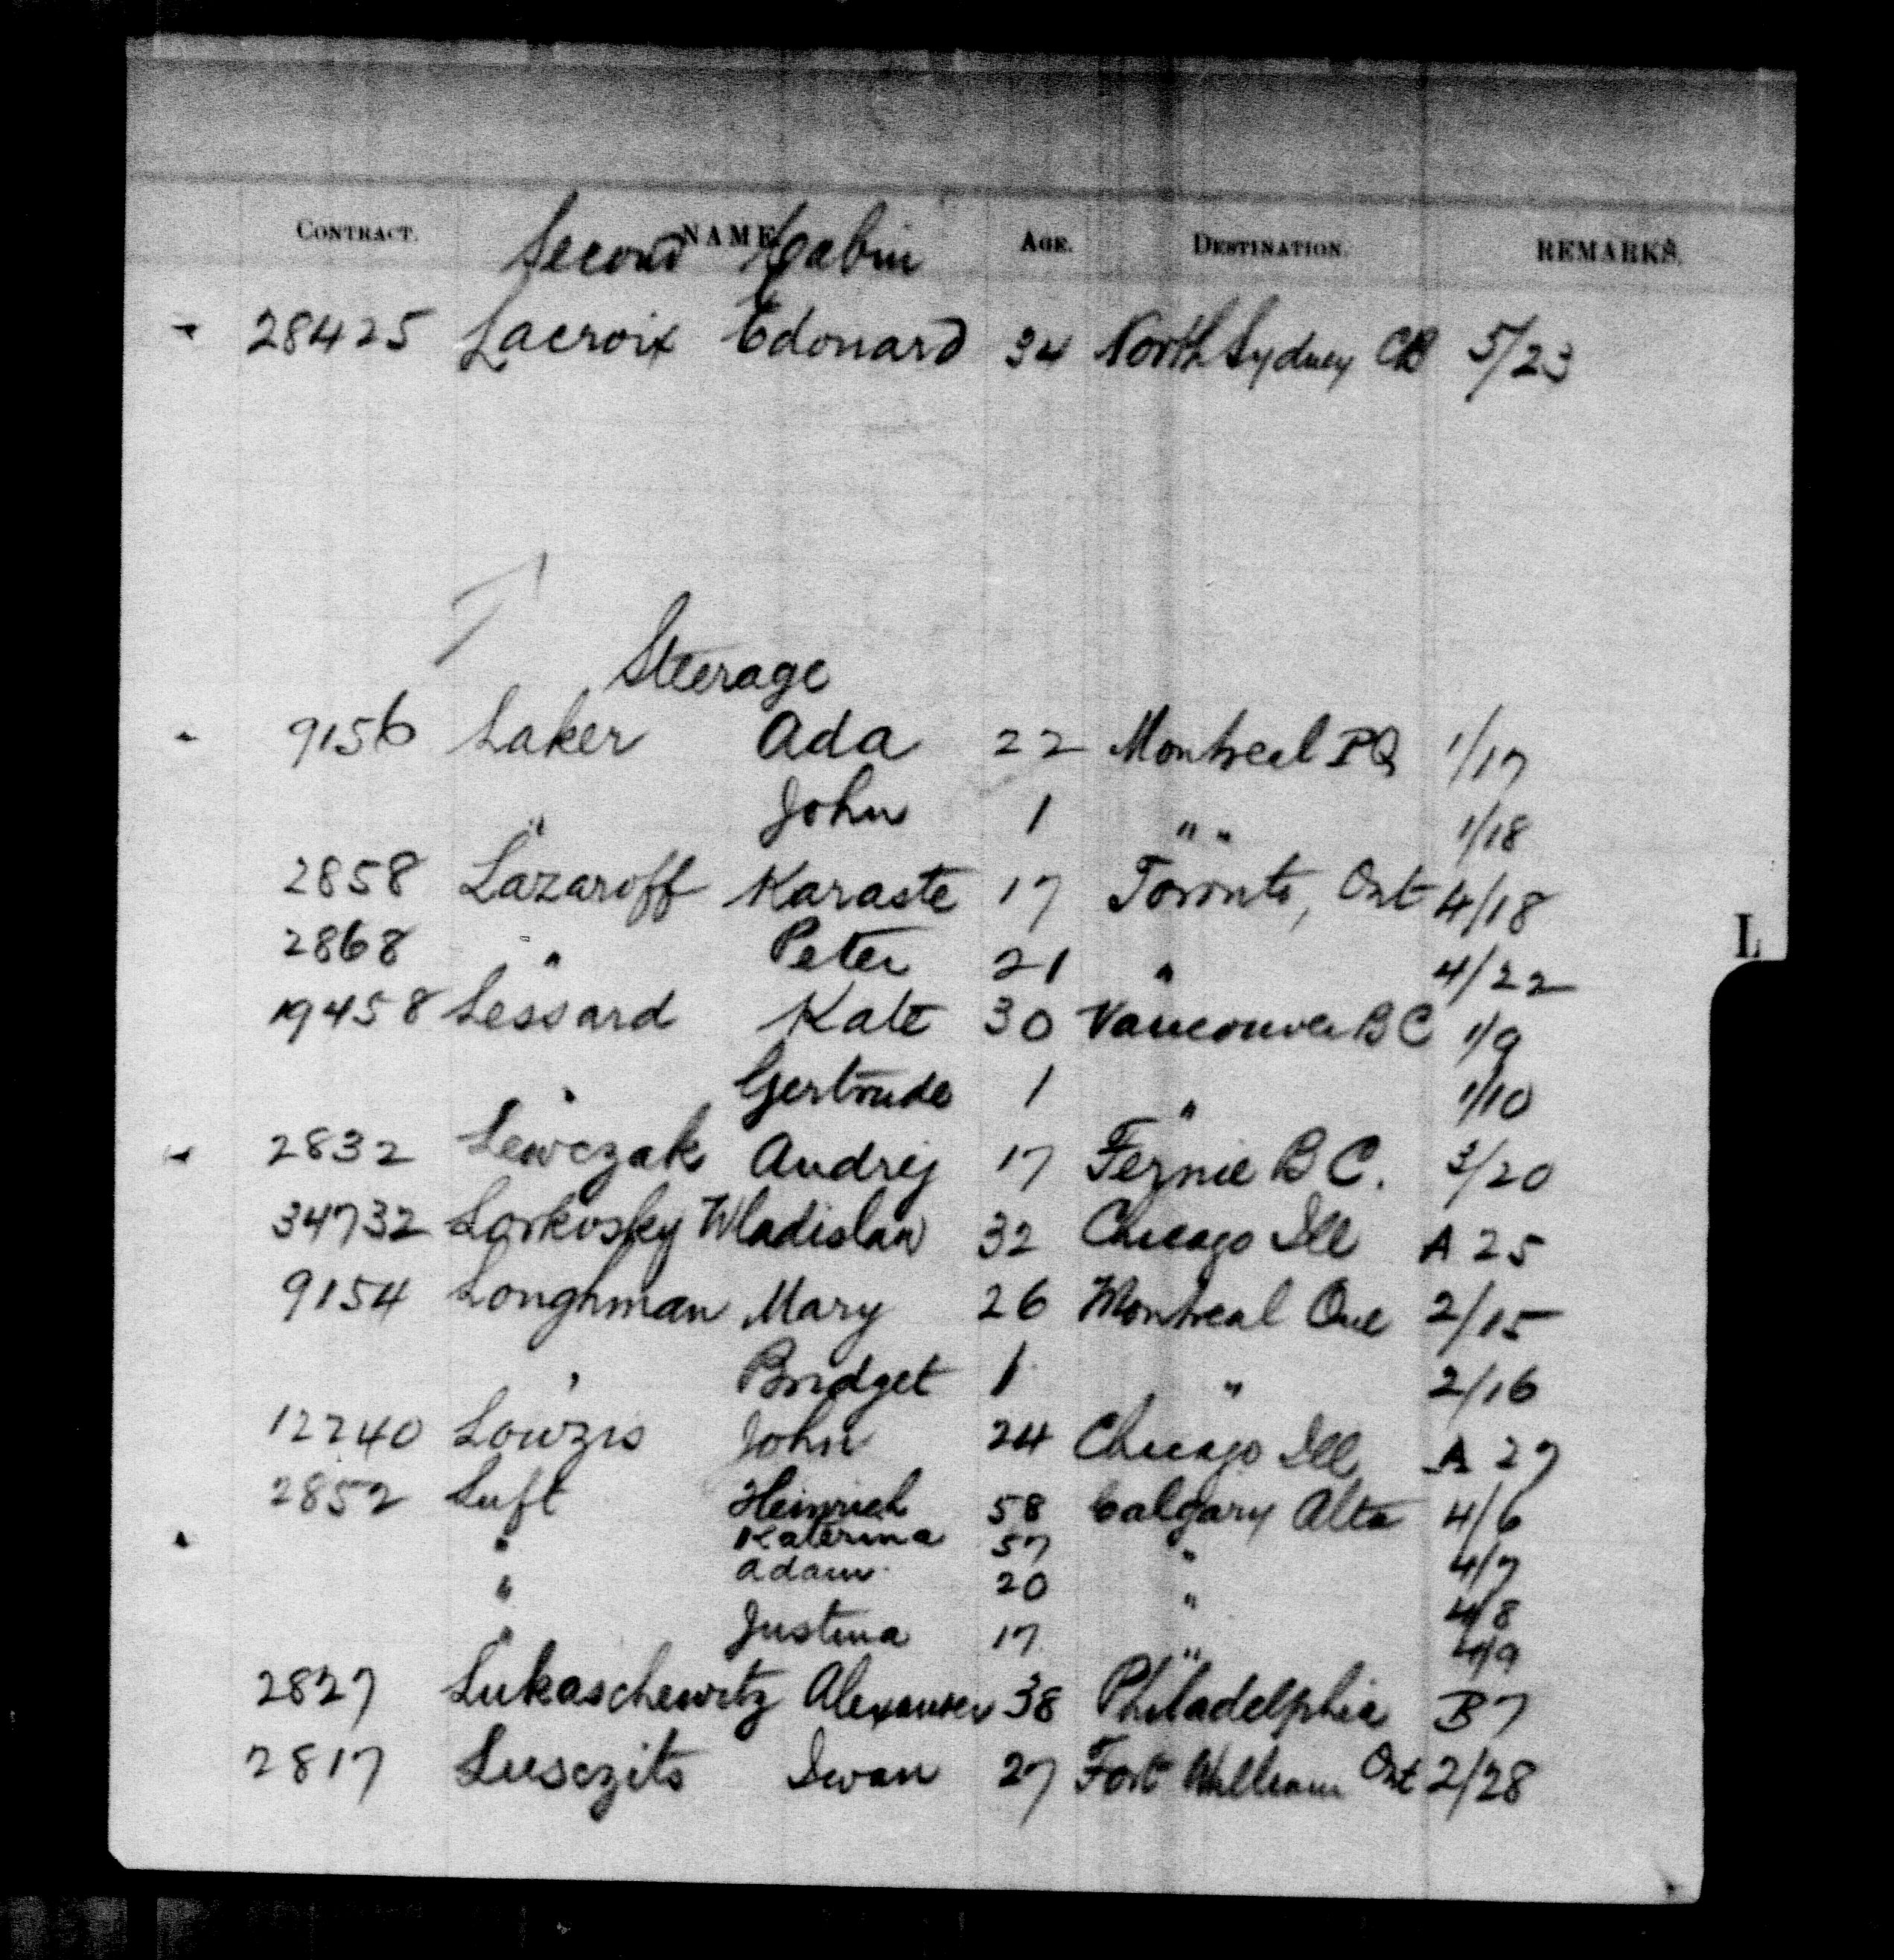 CONTRACT. NAME AGE. DESTINATION. REMARKS.
Second Cabin
28425 Lacroix Edouard 34 North Sydney CB 5/23
Steerage
9156 Laker Ada 22 Montreal PQ 1/17
" John 1 " " 1/18
2858 Lazaroff Karaste 17 Toronto, Ont 4/18
2868 " Peter 21 " 4/22
19458 Lessard Kate 30 Vancouver BC 1/9
" Gertrude 1 " 1/10
2832 Lewczak Andrej 17 Fernie B C. 3/20
34732 Lorkosky Wladislaw 32 Chicago Ill A 25
9154 Longhman Mary 26 Montreal Que 2/15
" Bridget 1 " 2/16
12240 Lowzis John 24 Chicago Ill A 27
2852 Luft Heinrich 58 Calgary Alta 4/6
" Katerina 57 " 4/7
" Adam 20 " 4/8
" Justina 17 " 4/9
2827 Lukaschewitz Alexander 38 Philadelphia B7
2817 Lusczits Iwan 27 Fort William Ont 2/28
L